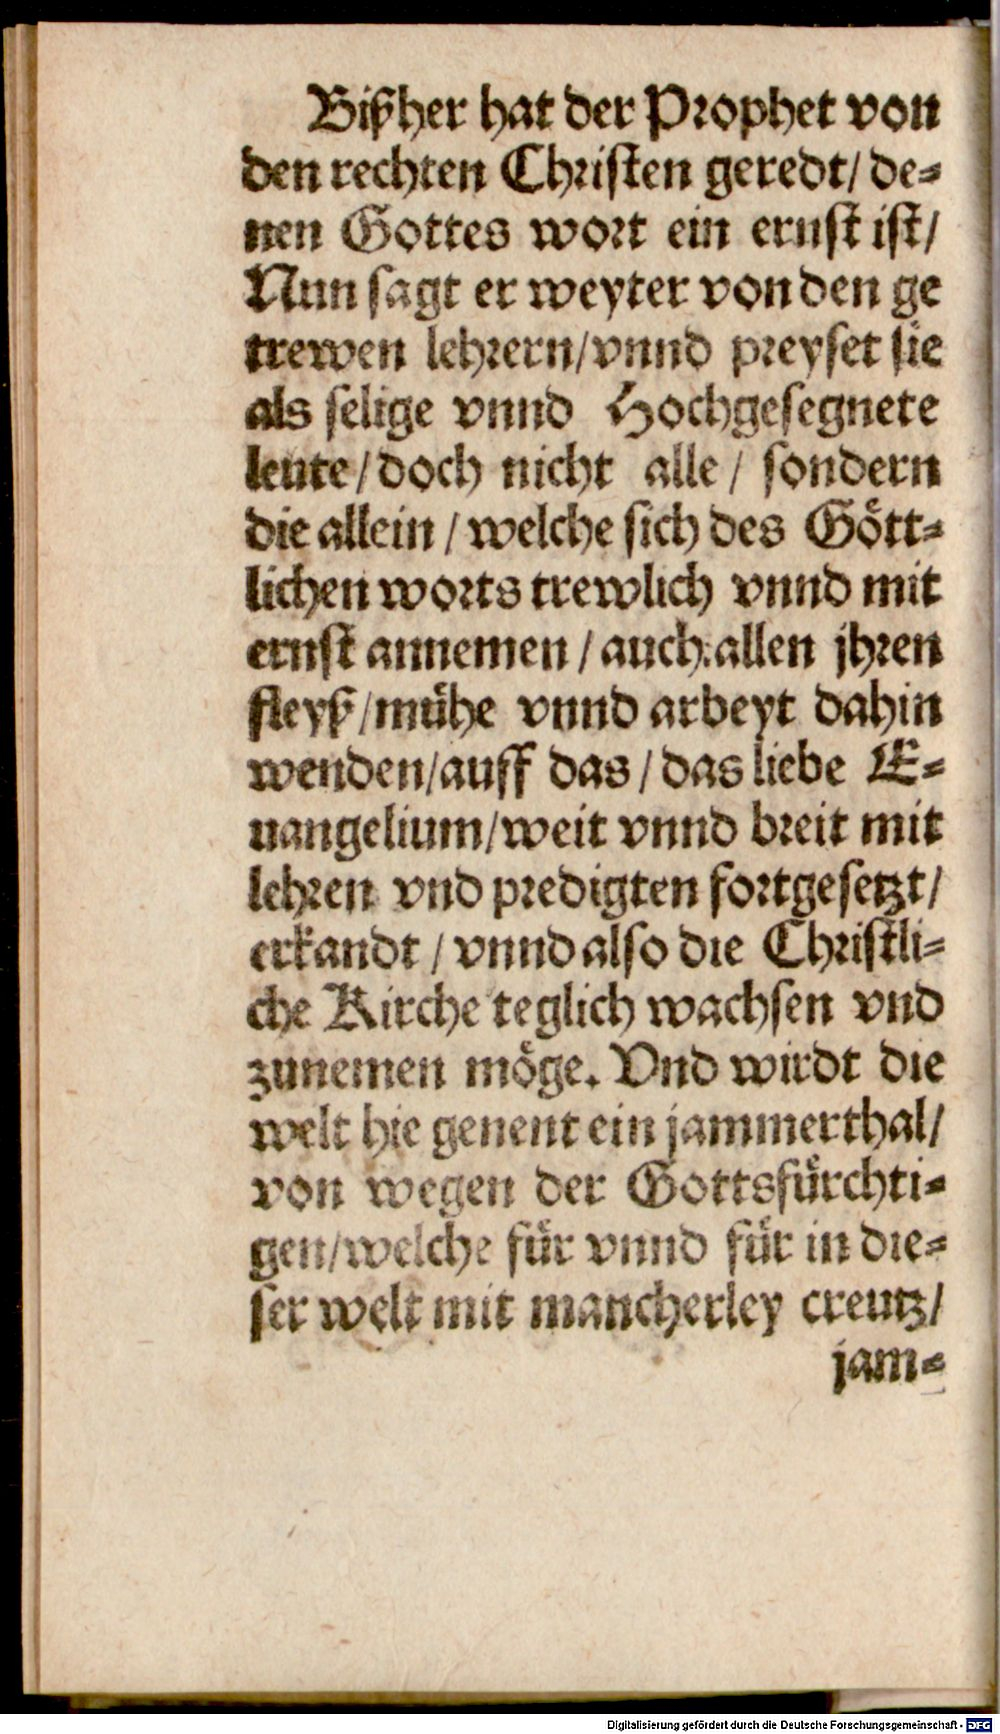 Bißher hat der Prophet von
den rechten Christen geredt/ de⸗
nen Gottes wort ein ernst ist/
Nun sagt er weyter von den ge
trewen lehrern/vnnd preyset sie
als selige vnnd Hochgesegnete
leute/doch nicht alle/ sondern
die allein/welche sich des Gött⸗
lichen worts trewlich vnnd mit
ernst annemen/auch allen jhren
fleyß/mühe vnnd arbeyt dahin
wenden/auff das/das liebe E⸗
uangelium/weit vnnd breit mit
lehren vnd predigten fortgesetzt/
erkandt/vnnd also die Christli⸗
che Kirche teglich wachsen vnd
zunemen möge. Vnd wirdt die
welt hie genent ein jammerthal/
von wegen der Gottsfürchti⸗
gen/welche für vnnd für in die⸗
ser welt mit mancherley creutz/
jam⸗
Digitalisierung gefördert durch die Deutsche Forschungsgemeinschaft - DFG